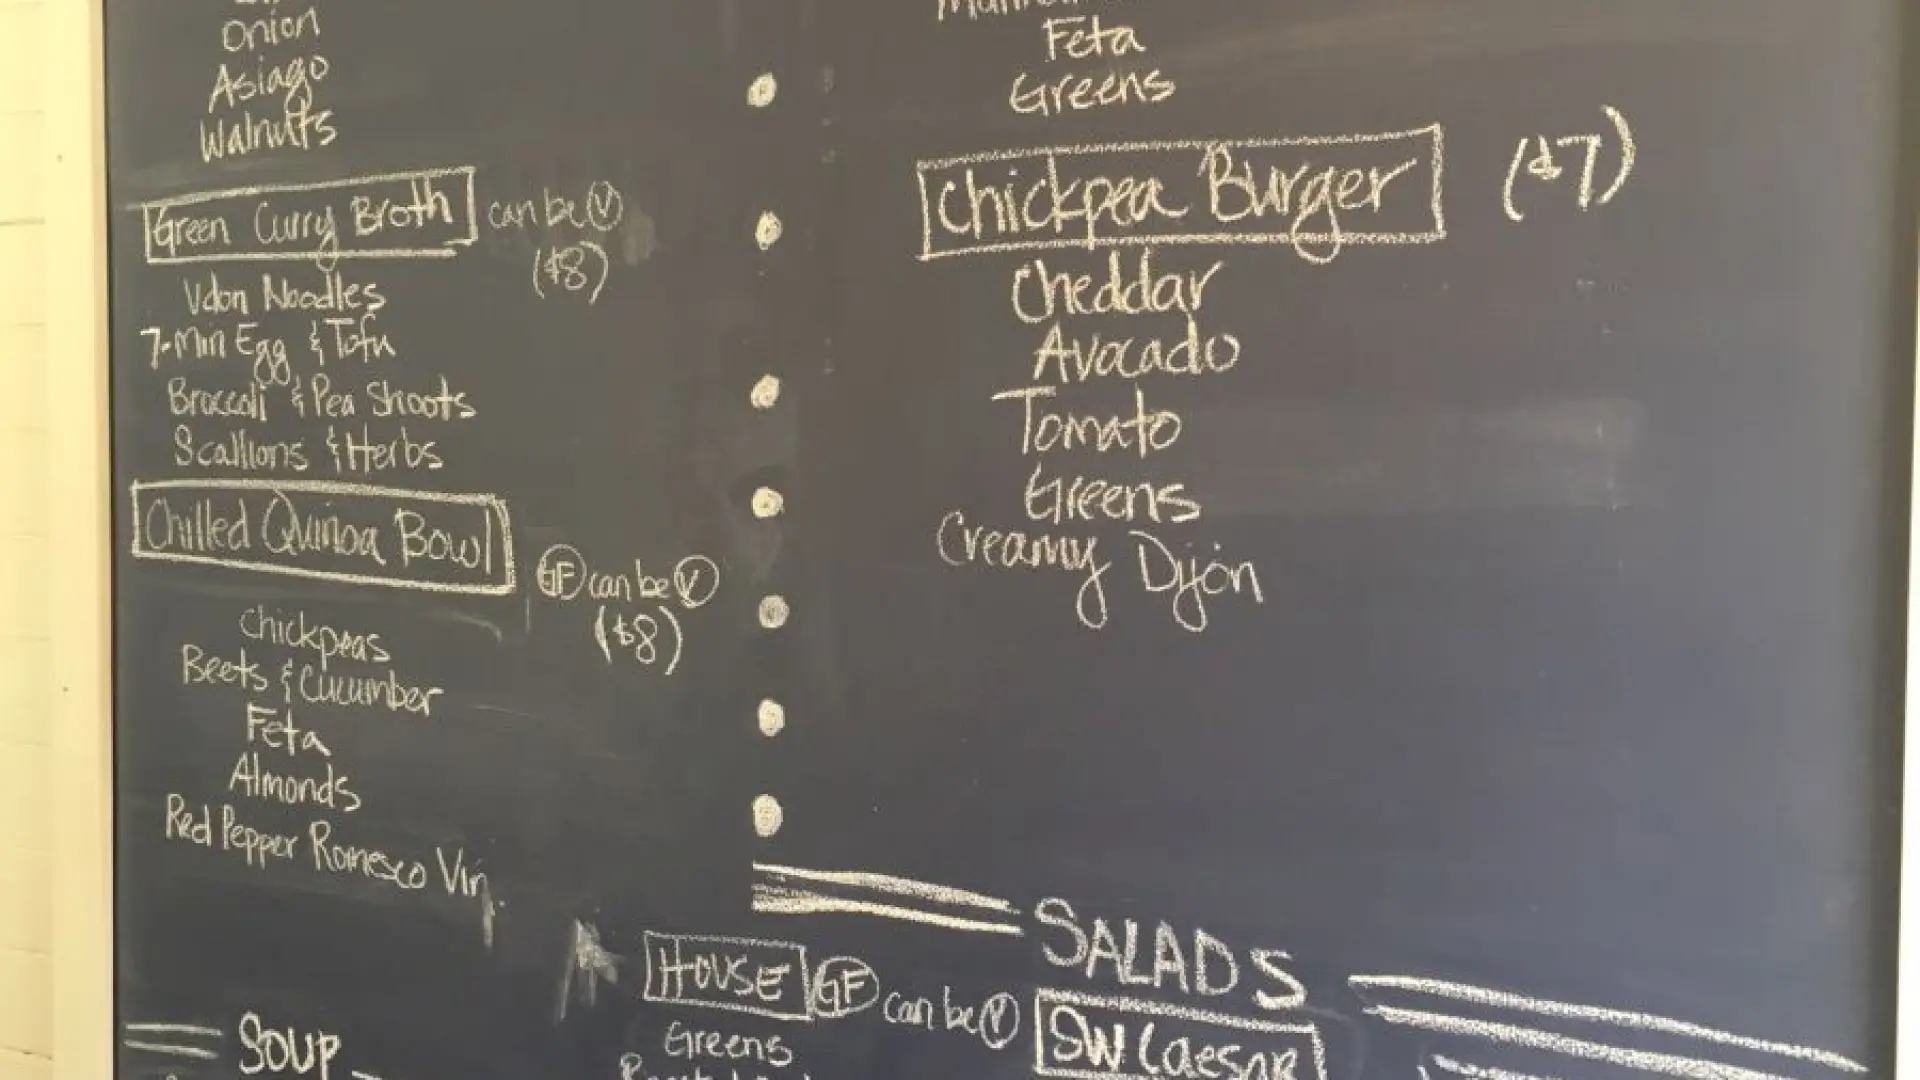 Onion
Asiago
Walnuts
Green Curry Broth can be V
($8)
Udon Noodles
7-Min Egg & Tofu
Broccoli & Pea Shoots
Scallions & Herbs
Chilled Quinoa Bowl
GF can be V
($8)
Chickpeas
Beets & Cucumber
Feta
Almonds
Red Pepper Romesco Vin.
Feta
Greens
Chickpea Burger ($7)
Cheddar
Avocado
Tomato
Greens
Creamy Dijon
SALADS
HOUSE GF can be V
Greens
SW Caesar
SOUP